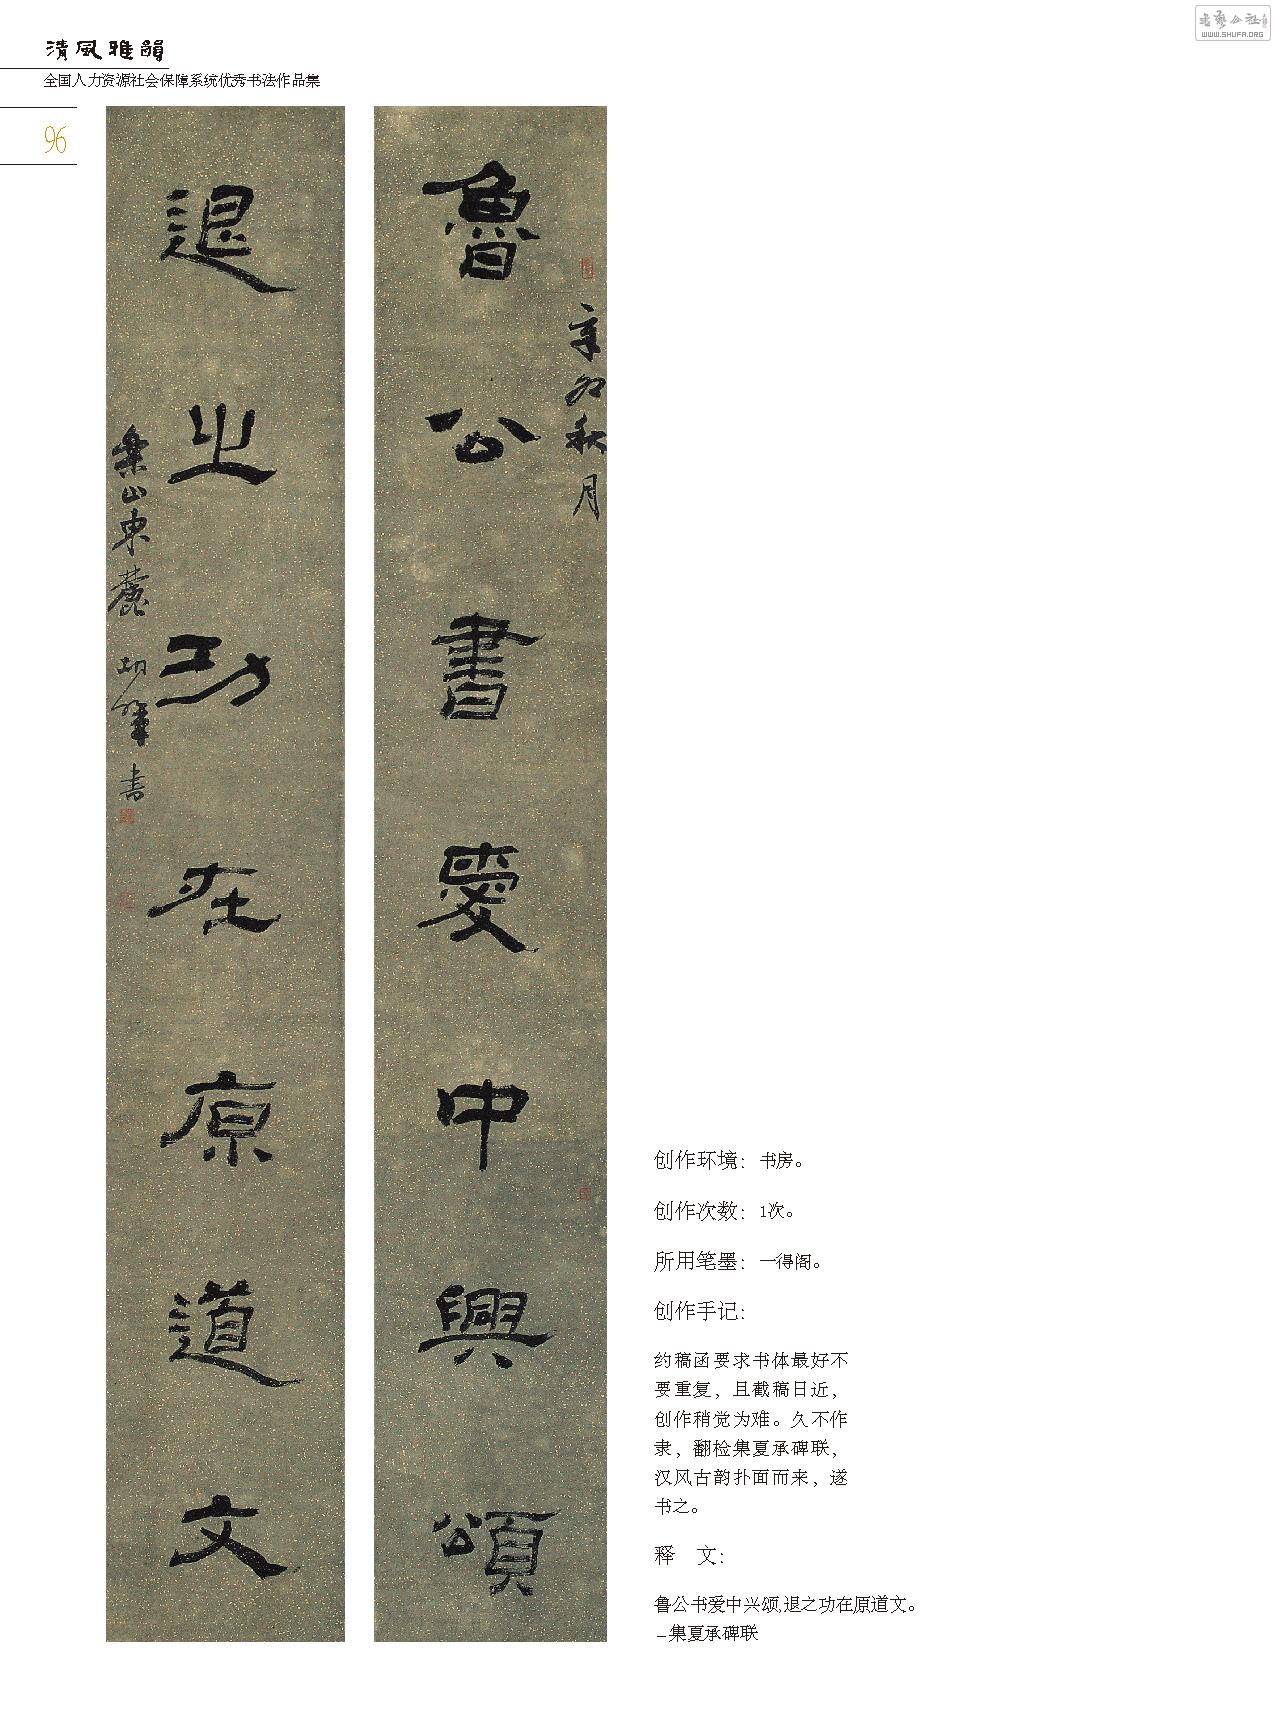 清風雅韻
全国人力资源社会保障系统优秀书法作品集
96
WWW.SHUFA.ORG
魯公書愛中興頌
辛卯秋月
退之功在原道文
山東麓
書
创作环境：书房。
创作次数：1次。
所用笔墨：一得阁。
创作手记：
约稿函要求书体最好不
要重复，且截稿日近，
创作稍觉为难。久不作
隶，翻检集夏承碑联，
汉风古韵扑面而来，遂
书之。
释　文：
鲁公书爱中兴颂,退之功在原道文。
–集夏承碑联